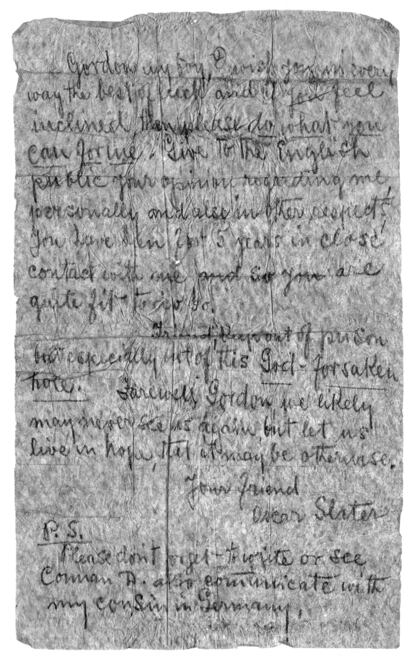 Gordon my boy, I wish you in every
way the best of luck and if you feel
inclined, then please do what you
can for me. Give to the English
public your opinion regarding me,
personally and also in other respects,
You have been for 5 years in close
contact with me and so you are
quite fit to do so.
Friend, keep out of prison
but especially out of this God-forsaken
hole. Farewell Gordon, we likely
may never see us again, but let us
live in hope, that it may be otherwise.
Your friend
Oscar Slater
P.S.
Please don't forget to write or see
Connan D. also communicate with
my cousin in Germany.